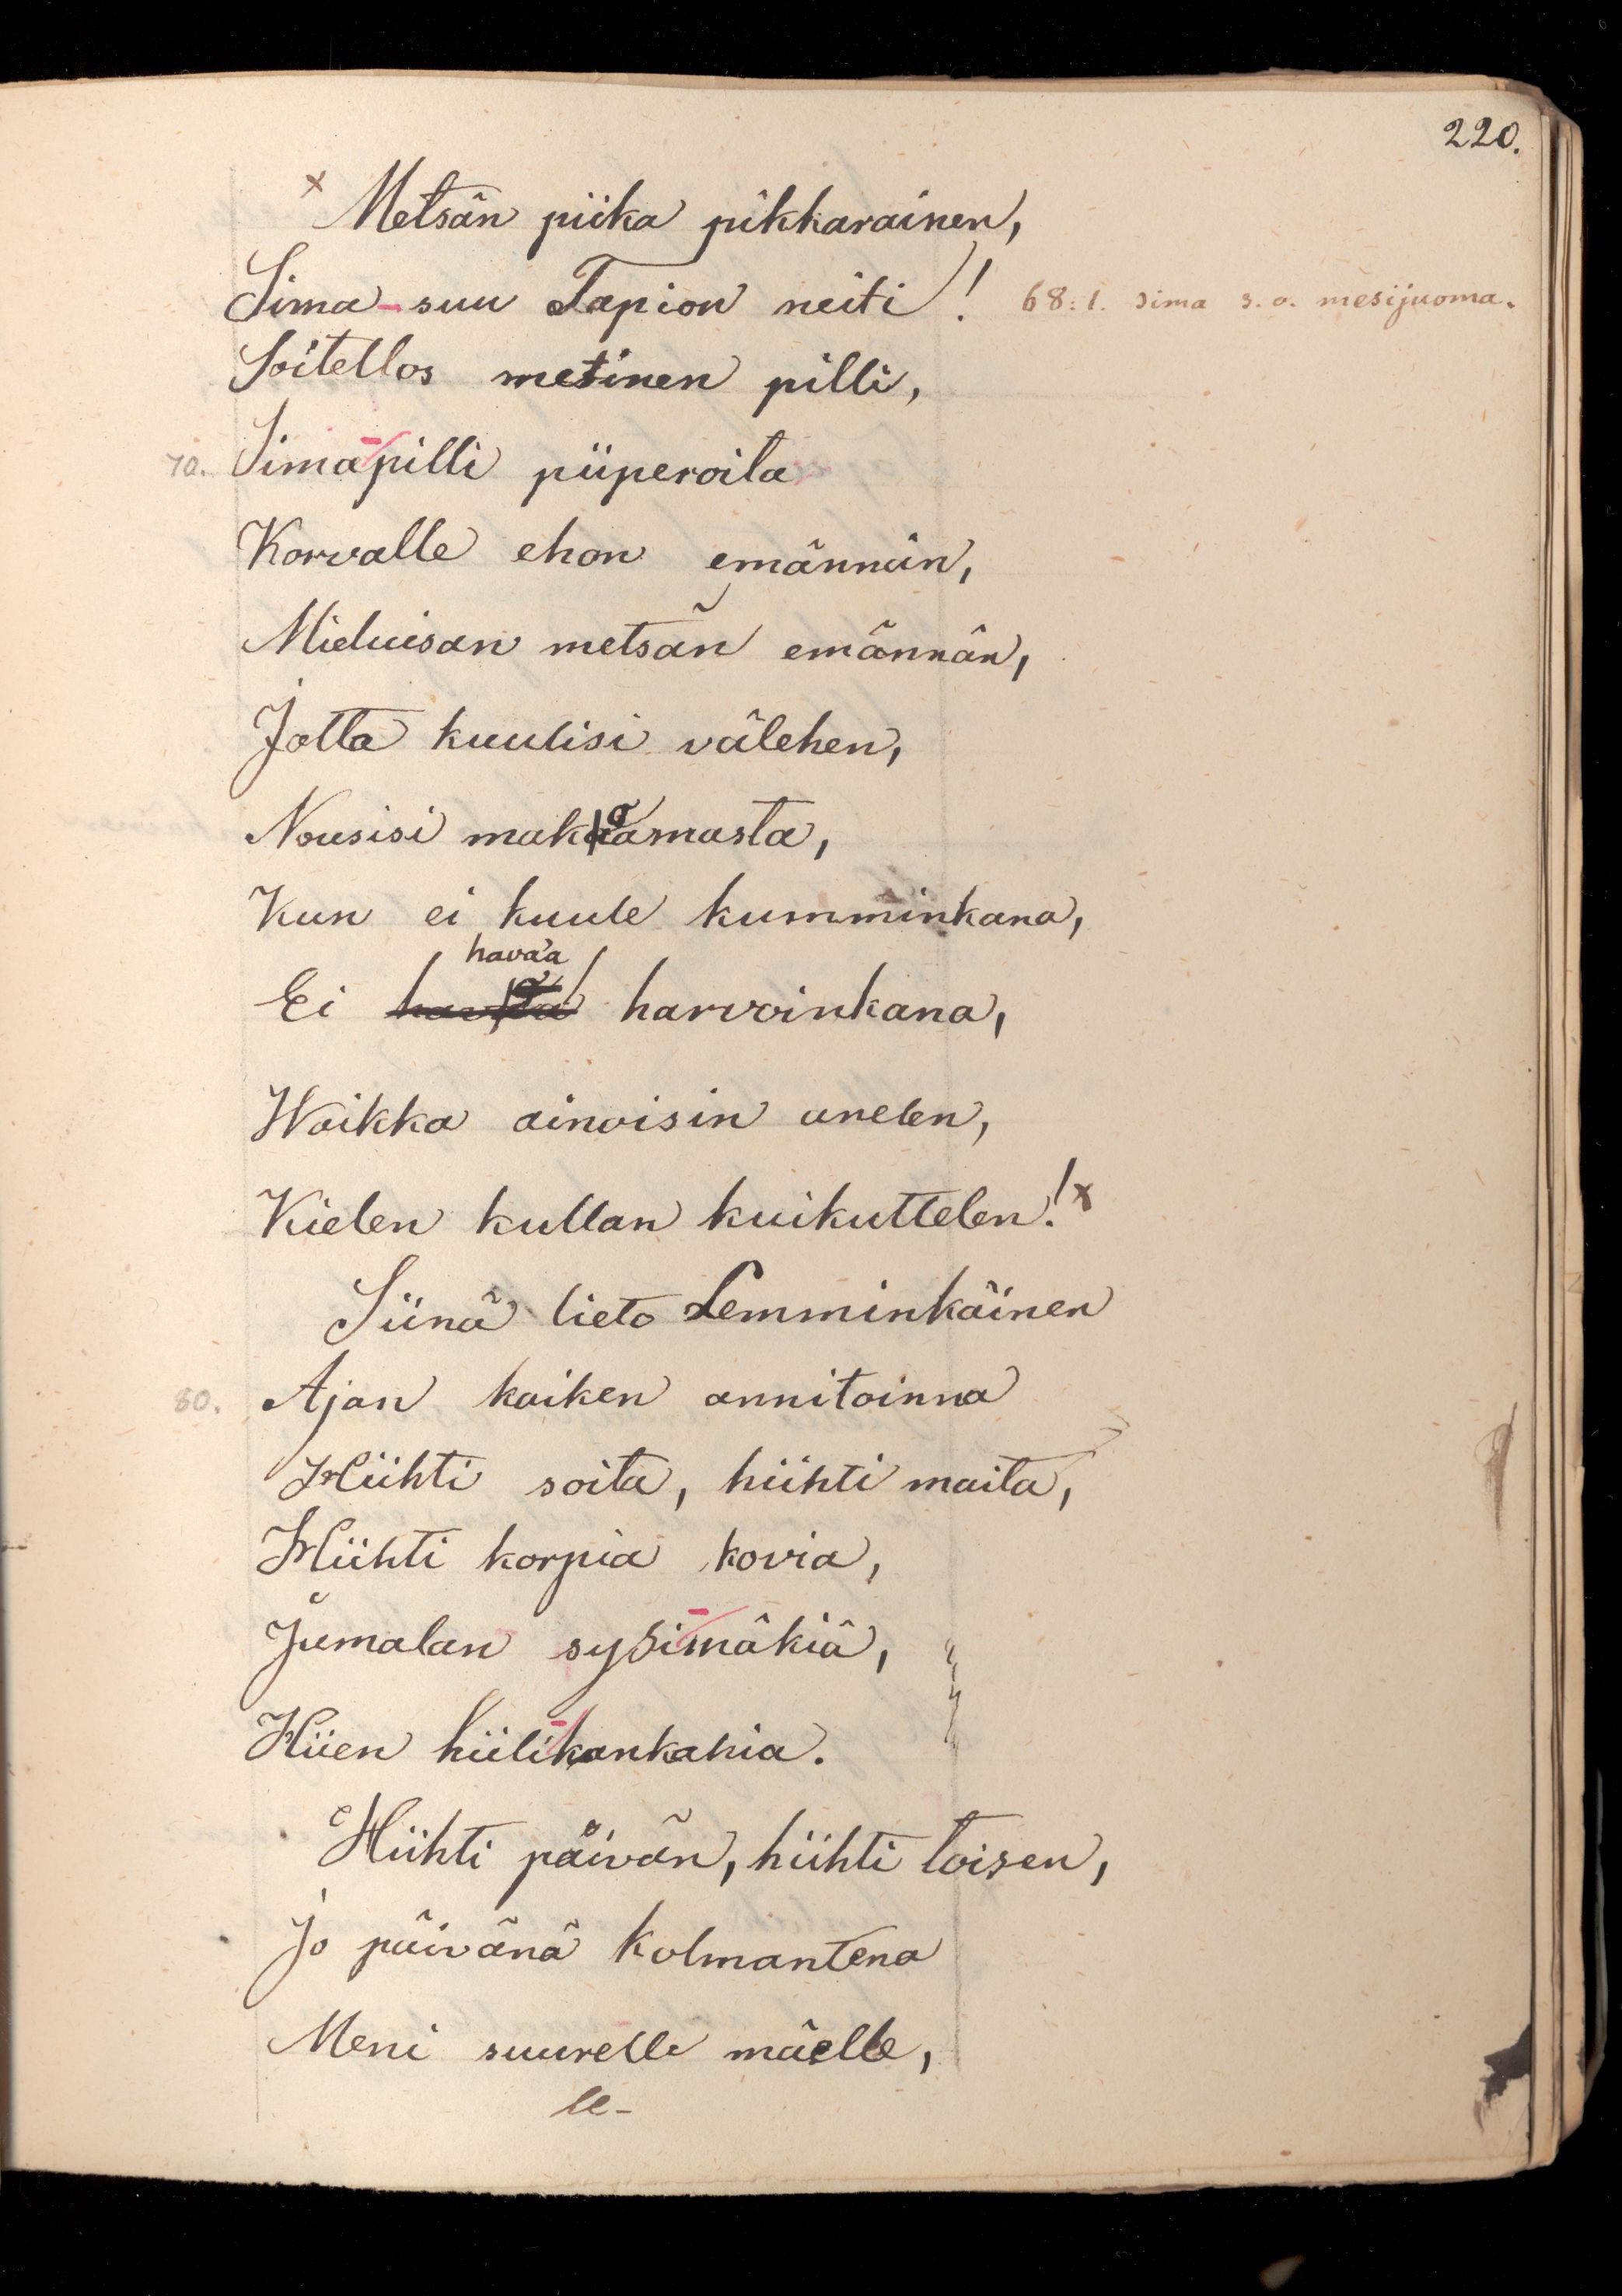 220.
x Metsän piika pikkarainen,
Sima-suu Tapion neiti! 68: 1. Sima s. o. mesijuoma.
Soitellos metinen pilli,
70. Sima-pilli piiperoita
Korvalle ehon emännän,
Mieluisan metsän emännän,
Jotta kuulisi välehen,
Nousisi makaamasta,
Kun ei kuule kumminkana,
havaa
Ei harvoinkana,
Waikka ainoisin anelen,
Kielen kullan kuikuttelen! x
Siinä lieto Lemminkäinen
80. Ajan kaiken annitoinna
Hiihti soita, hiihti maita,
Hiihti korpia kovia,
Jumalan sysi-mäkiä,
Hiien hiili-kankahia.
Hiihti päivän, hiihti toisen,
Jo päivänä kolmantena
Meni suurelle mäelle,